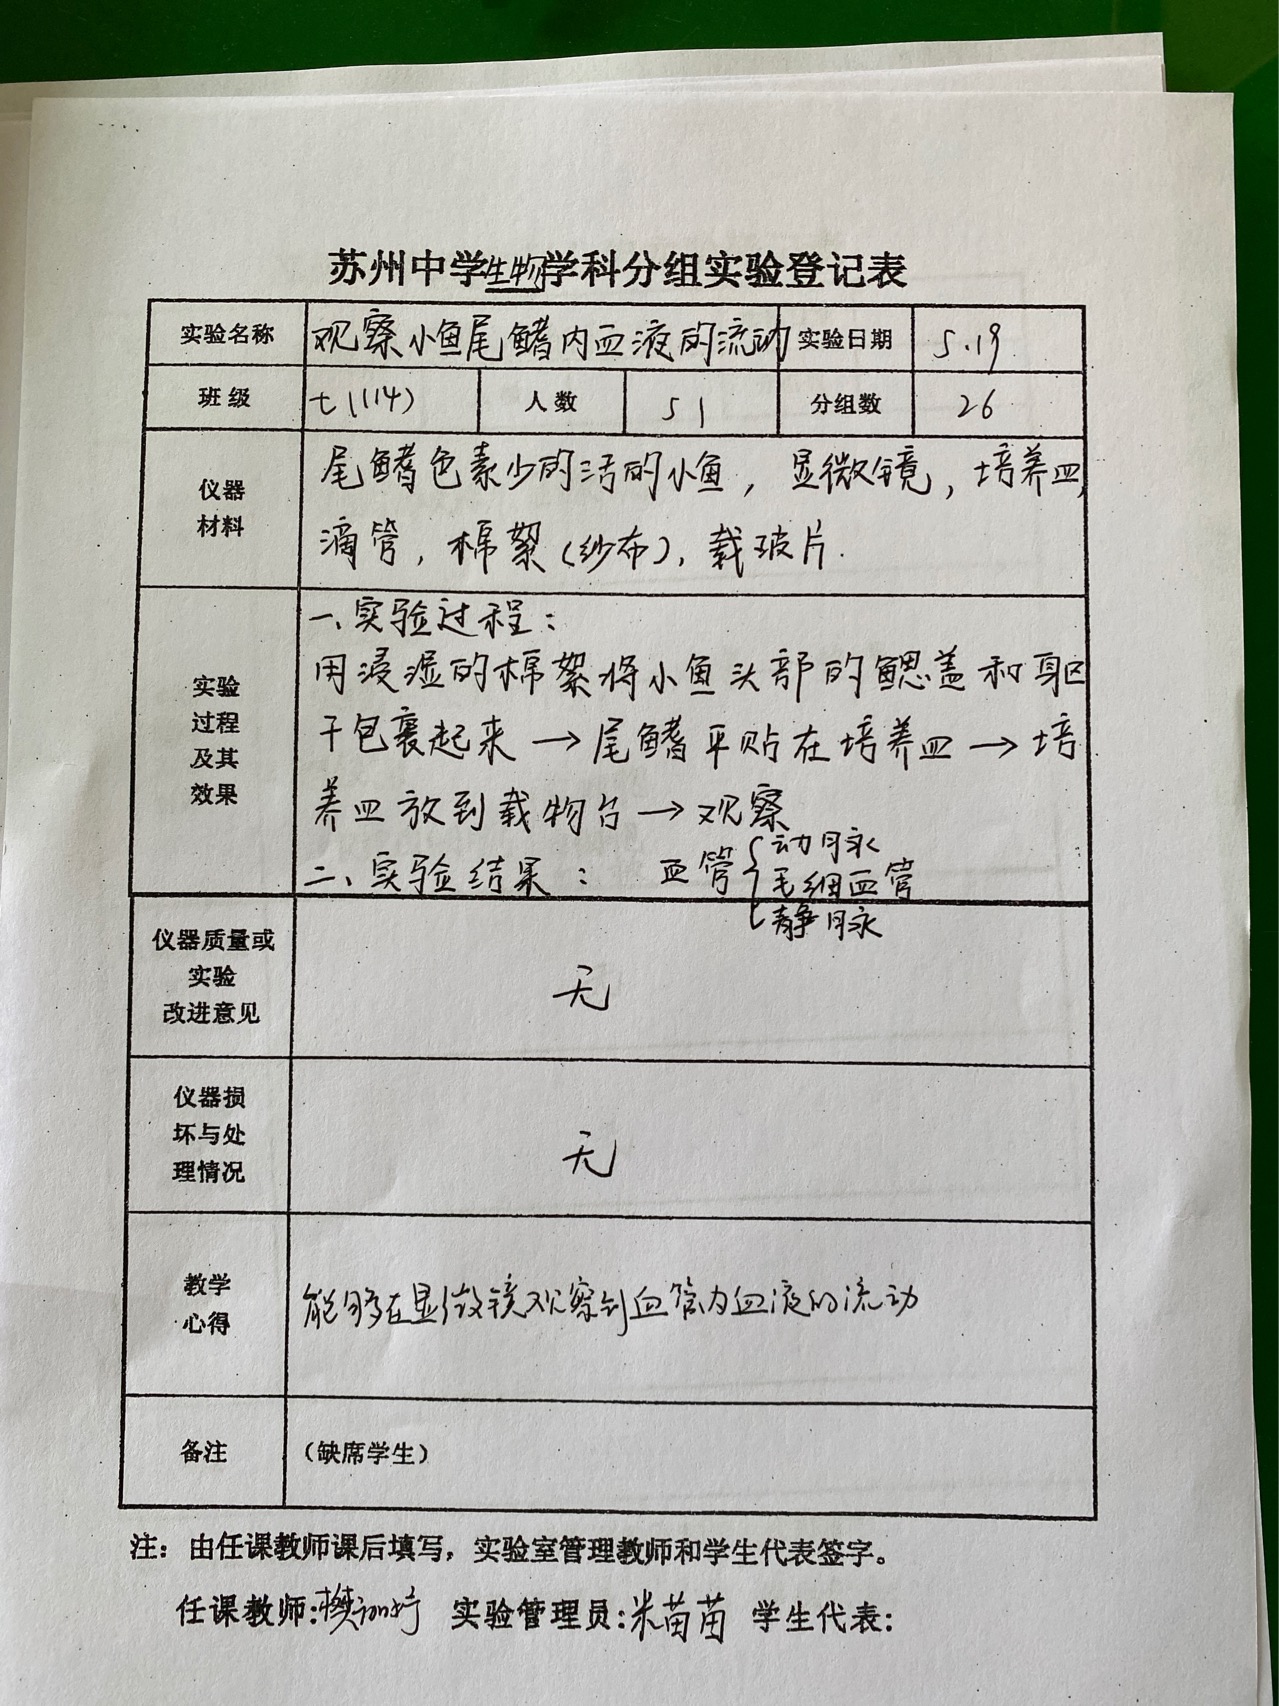 苏州中学生物学科分组实验登记表
实验名称 观察小鱼尾鳍内血液的流动 实验日期 5.19
班级 七(14) 人数 51 分组数 26
仪器
材料
尾鳍色素少的活的小鱼，显微镜，培养皿，
滴管，棉絮(纱布)，载玻片.
实验
过程
及其
效果
一、实验过程：
用浸湿的棉絮将小鱼头部的鳃盖和躯
干包裹起来→尾鳍平贴在培养皿→培
养皿放到载物台→观察
二、实验结果： 血管{动脉
毛细血管
静脉
仪器质量或
实验
改进意见
无
仪器损
坏与处
理情况
无
教学
心得
能够在显微镜观察到血管内血液的流动
备注 （缺席学生）
注：由任课教师课后填写，实验室管理教师和学生代表签字。
任课教师: 实验管理员:米苗苗 学生代表: